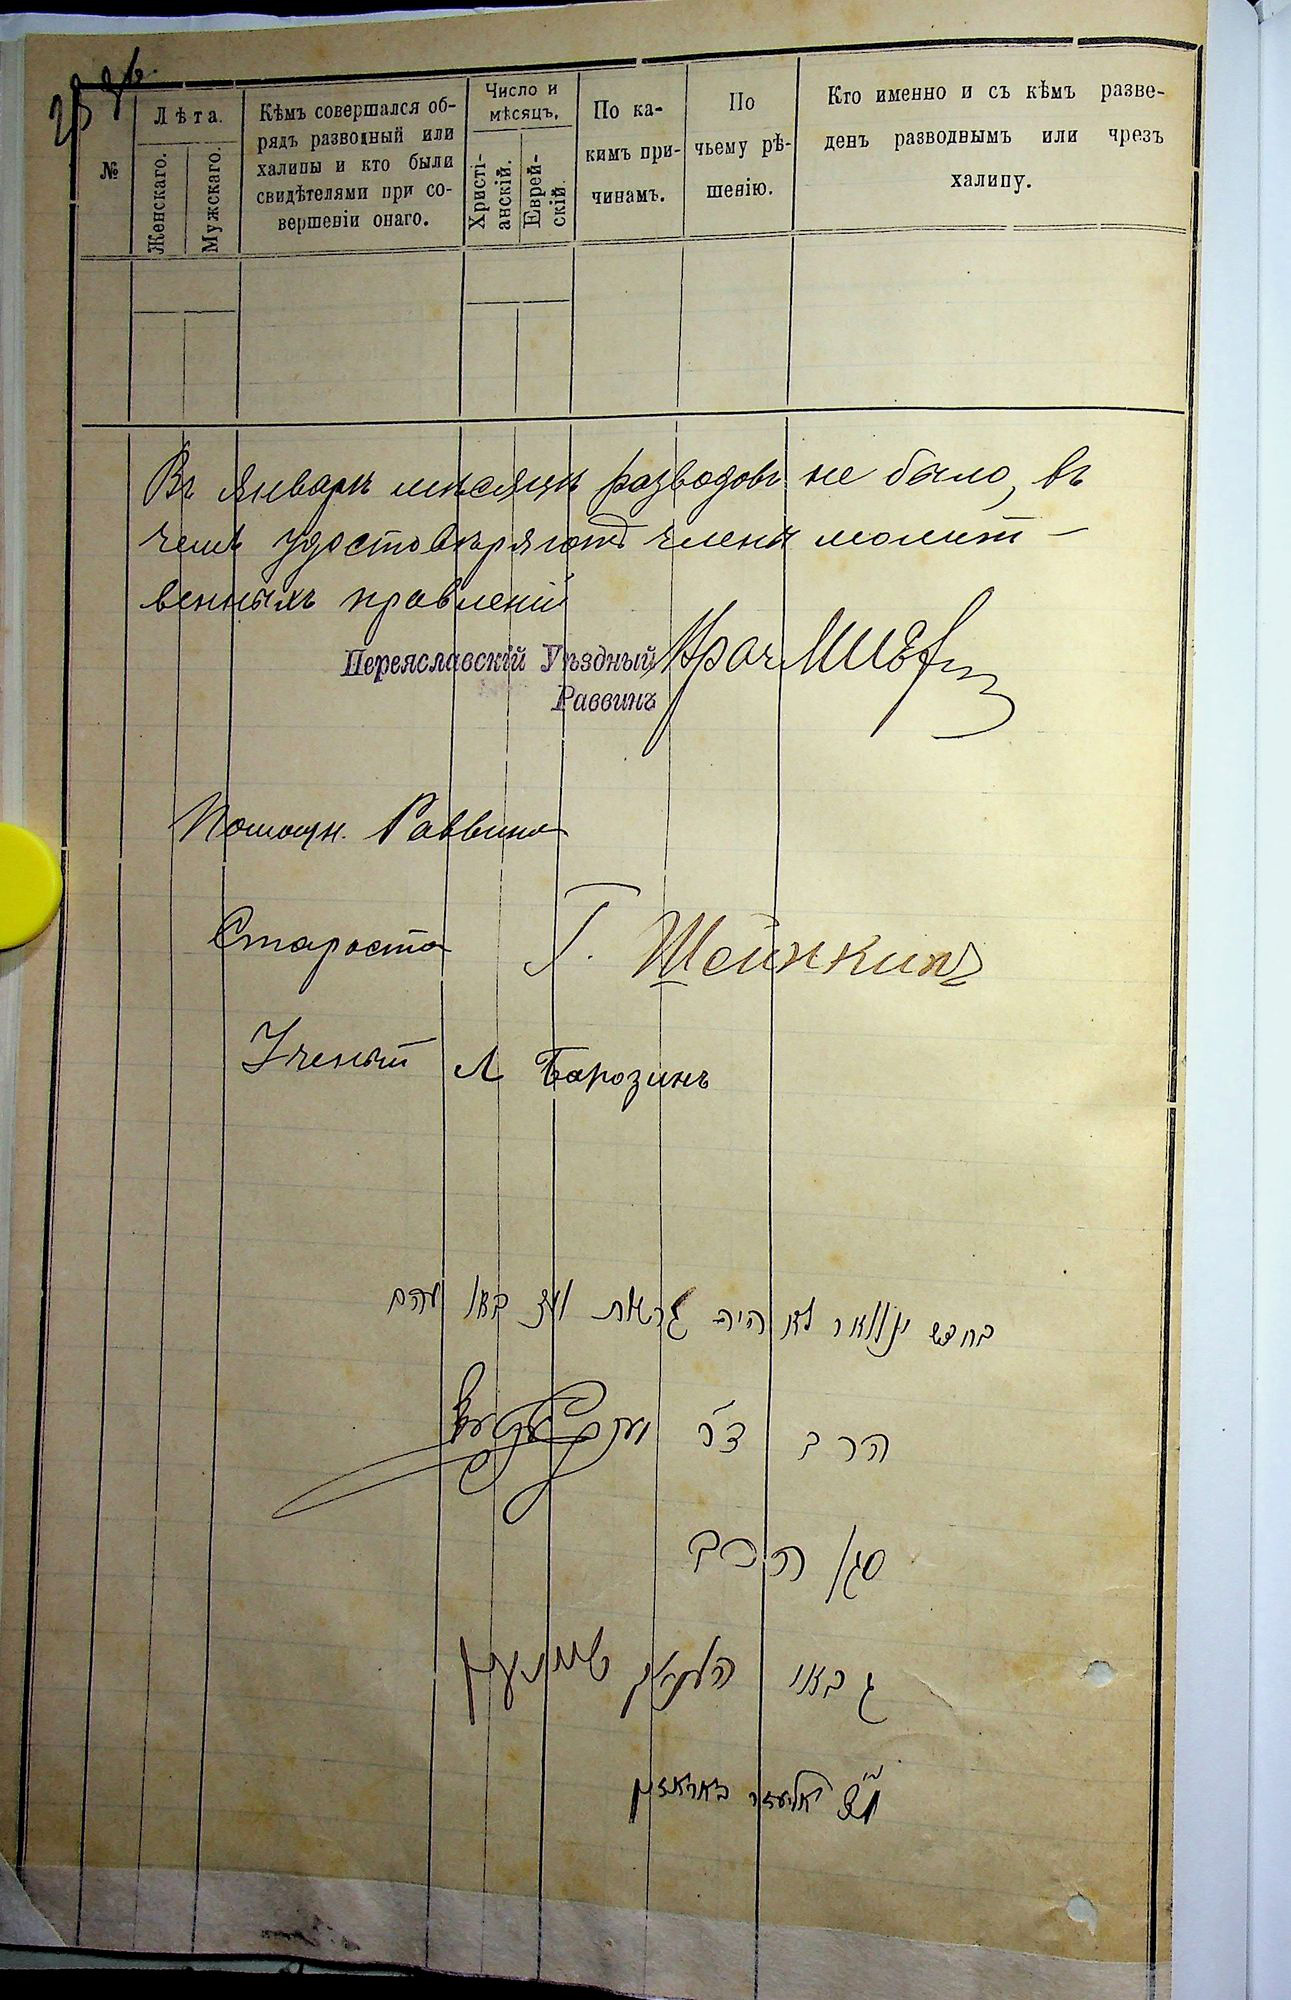 №
Лѣта.
Женскаго.
Мужскаго.
Кѣмъ совершался об-
рядъ разводный или
халипы и кто были
свидѣтелями при со-
вершеніи онаго.
Число и
мѣсяцъ.
Христі-
анскій.
Еврей-
скій.
По ка-
кимъ при-
чинамъ.
По
чьему рѣ-
шенію.
Кто именно и съ кѣмъ разве-
денъ разводнымъ или чрезъ
халипу.
Въ январѣ мѣсяцѣ разводовъ не было, въ
чемъ удостовѣряютъ члены молит-
венныхъ правленій
Переяславскій Уѣздный
Раввинъ
Помощн. Раввина
Староста Г. Шейнкинъ
Ученый Л Барозинъ
בחדש יאנוואר לא היה גרושות
הרב
סגן הרב
גבאי
אליעזר באראזין